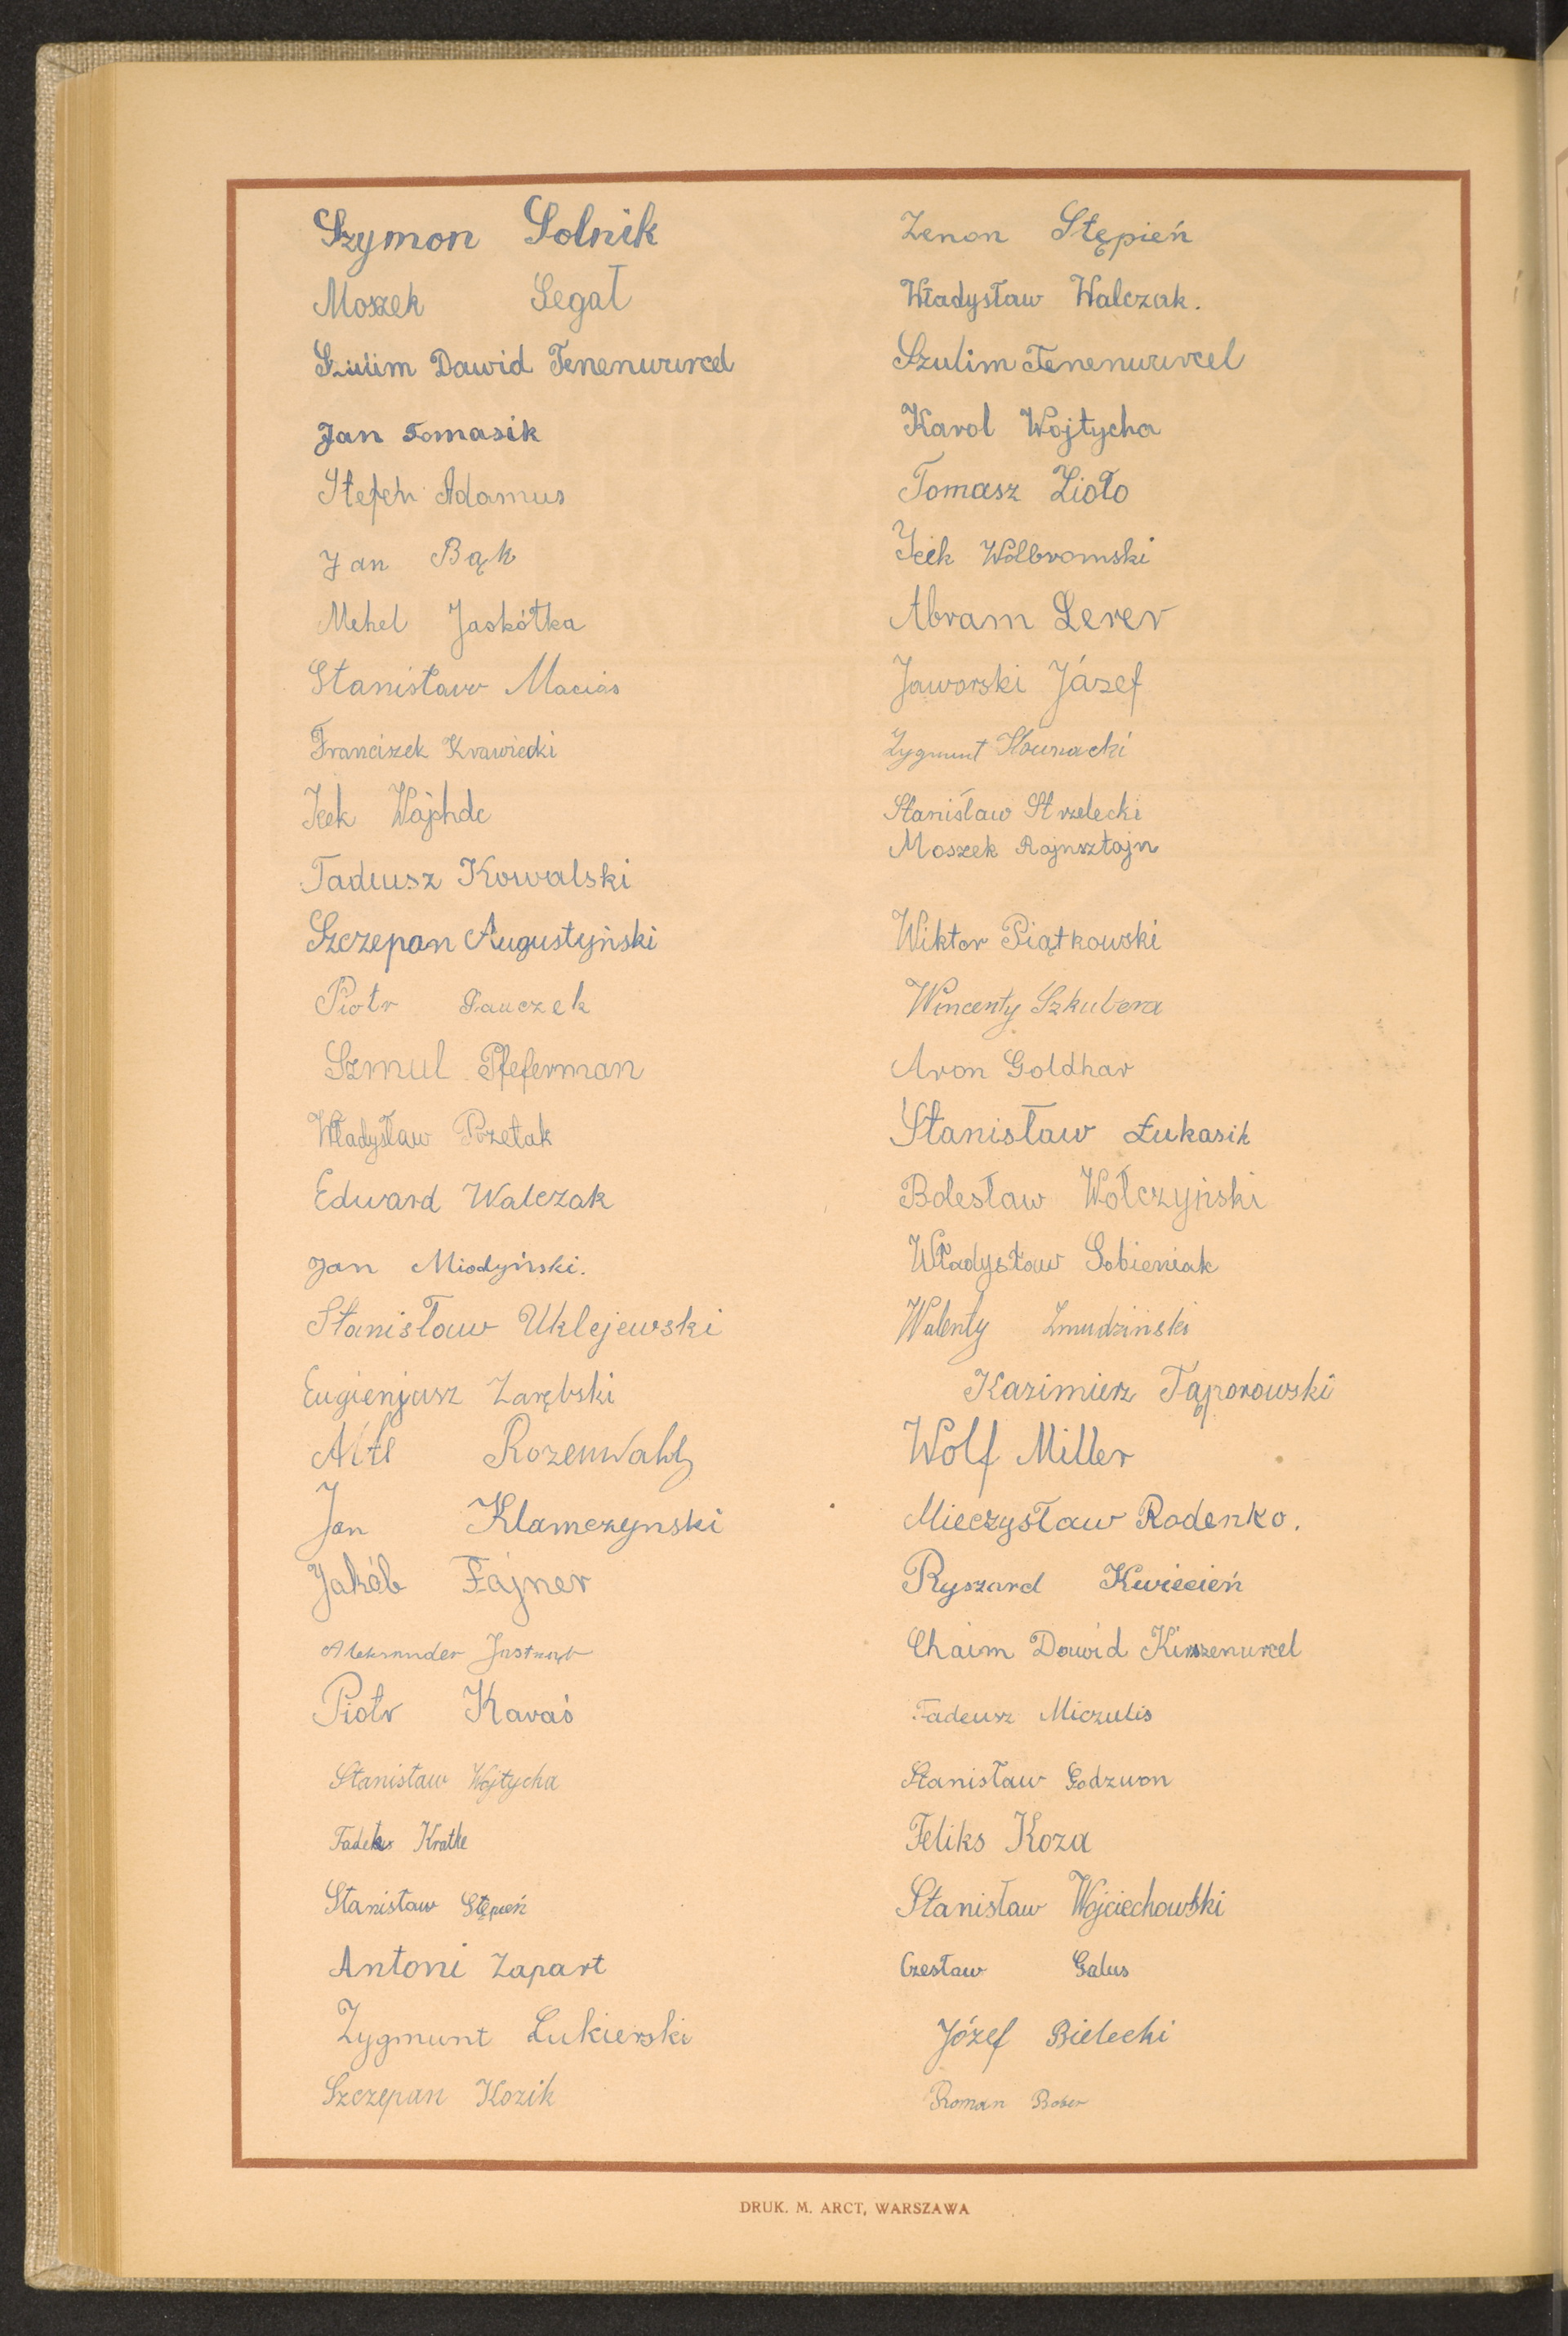 Szymon Solnik
Moszek Segał
Szulim Dawid Tenenwurcel
Jan Tomasik
Stefen Adamus
Jan Bąk
Mehel Jaskółka
Stanisław Macias
Franciszek Krawiecki
Icek
Tadeusz Kowalski
Szczepan Augustyński
Piotr
Szmul Pfeferman
Władysław
Edward Walczak
Jan Miodyński.
Stanisław Uklejewski
Eugienjusz Zarębski
Rozenwald
Jan Klamczynski
Jakób Fajner
Aleksander Jastrząb
Piotr Karaś
Stanisław Wojtycha
Kratke
Stanisław Stępień
Antoni Zapart
Zygmunt Lukierski
Szczepan Kozik
Zenon Stępień
Władysław Walczak.
Szulim Tenenwurcel
Karol Wojtycha
Tomasz Zioło
Icek Wolbromski
Abram Lerer
Jaworski Józef
Zygmunt
Stanisław Strzelecki
Moszek Rajnsztajn
Wiktor Piątkowski
Wincenty Szkubera
Aron Goldhar
Stanisław Łukasik
Bolesław Wółczyński
Władysław Sobieniak
Walenty Zmudziński
Kazimierz Taporowski
Wolf Miller
Mieczysław Rodenko.
Ryszard Kwiecień
Chaim Dawid Kirszenwrcel
Tadeusz Miczulis
Stanisław Godzwon
Feliks Koza
Stanisław Wojciechowski
Czesław Galus
Józef Bielecki
Roman Bober
DRUK. M. ARCT, WARSZAWA